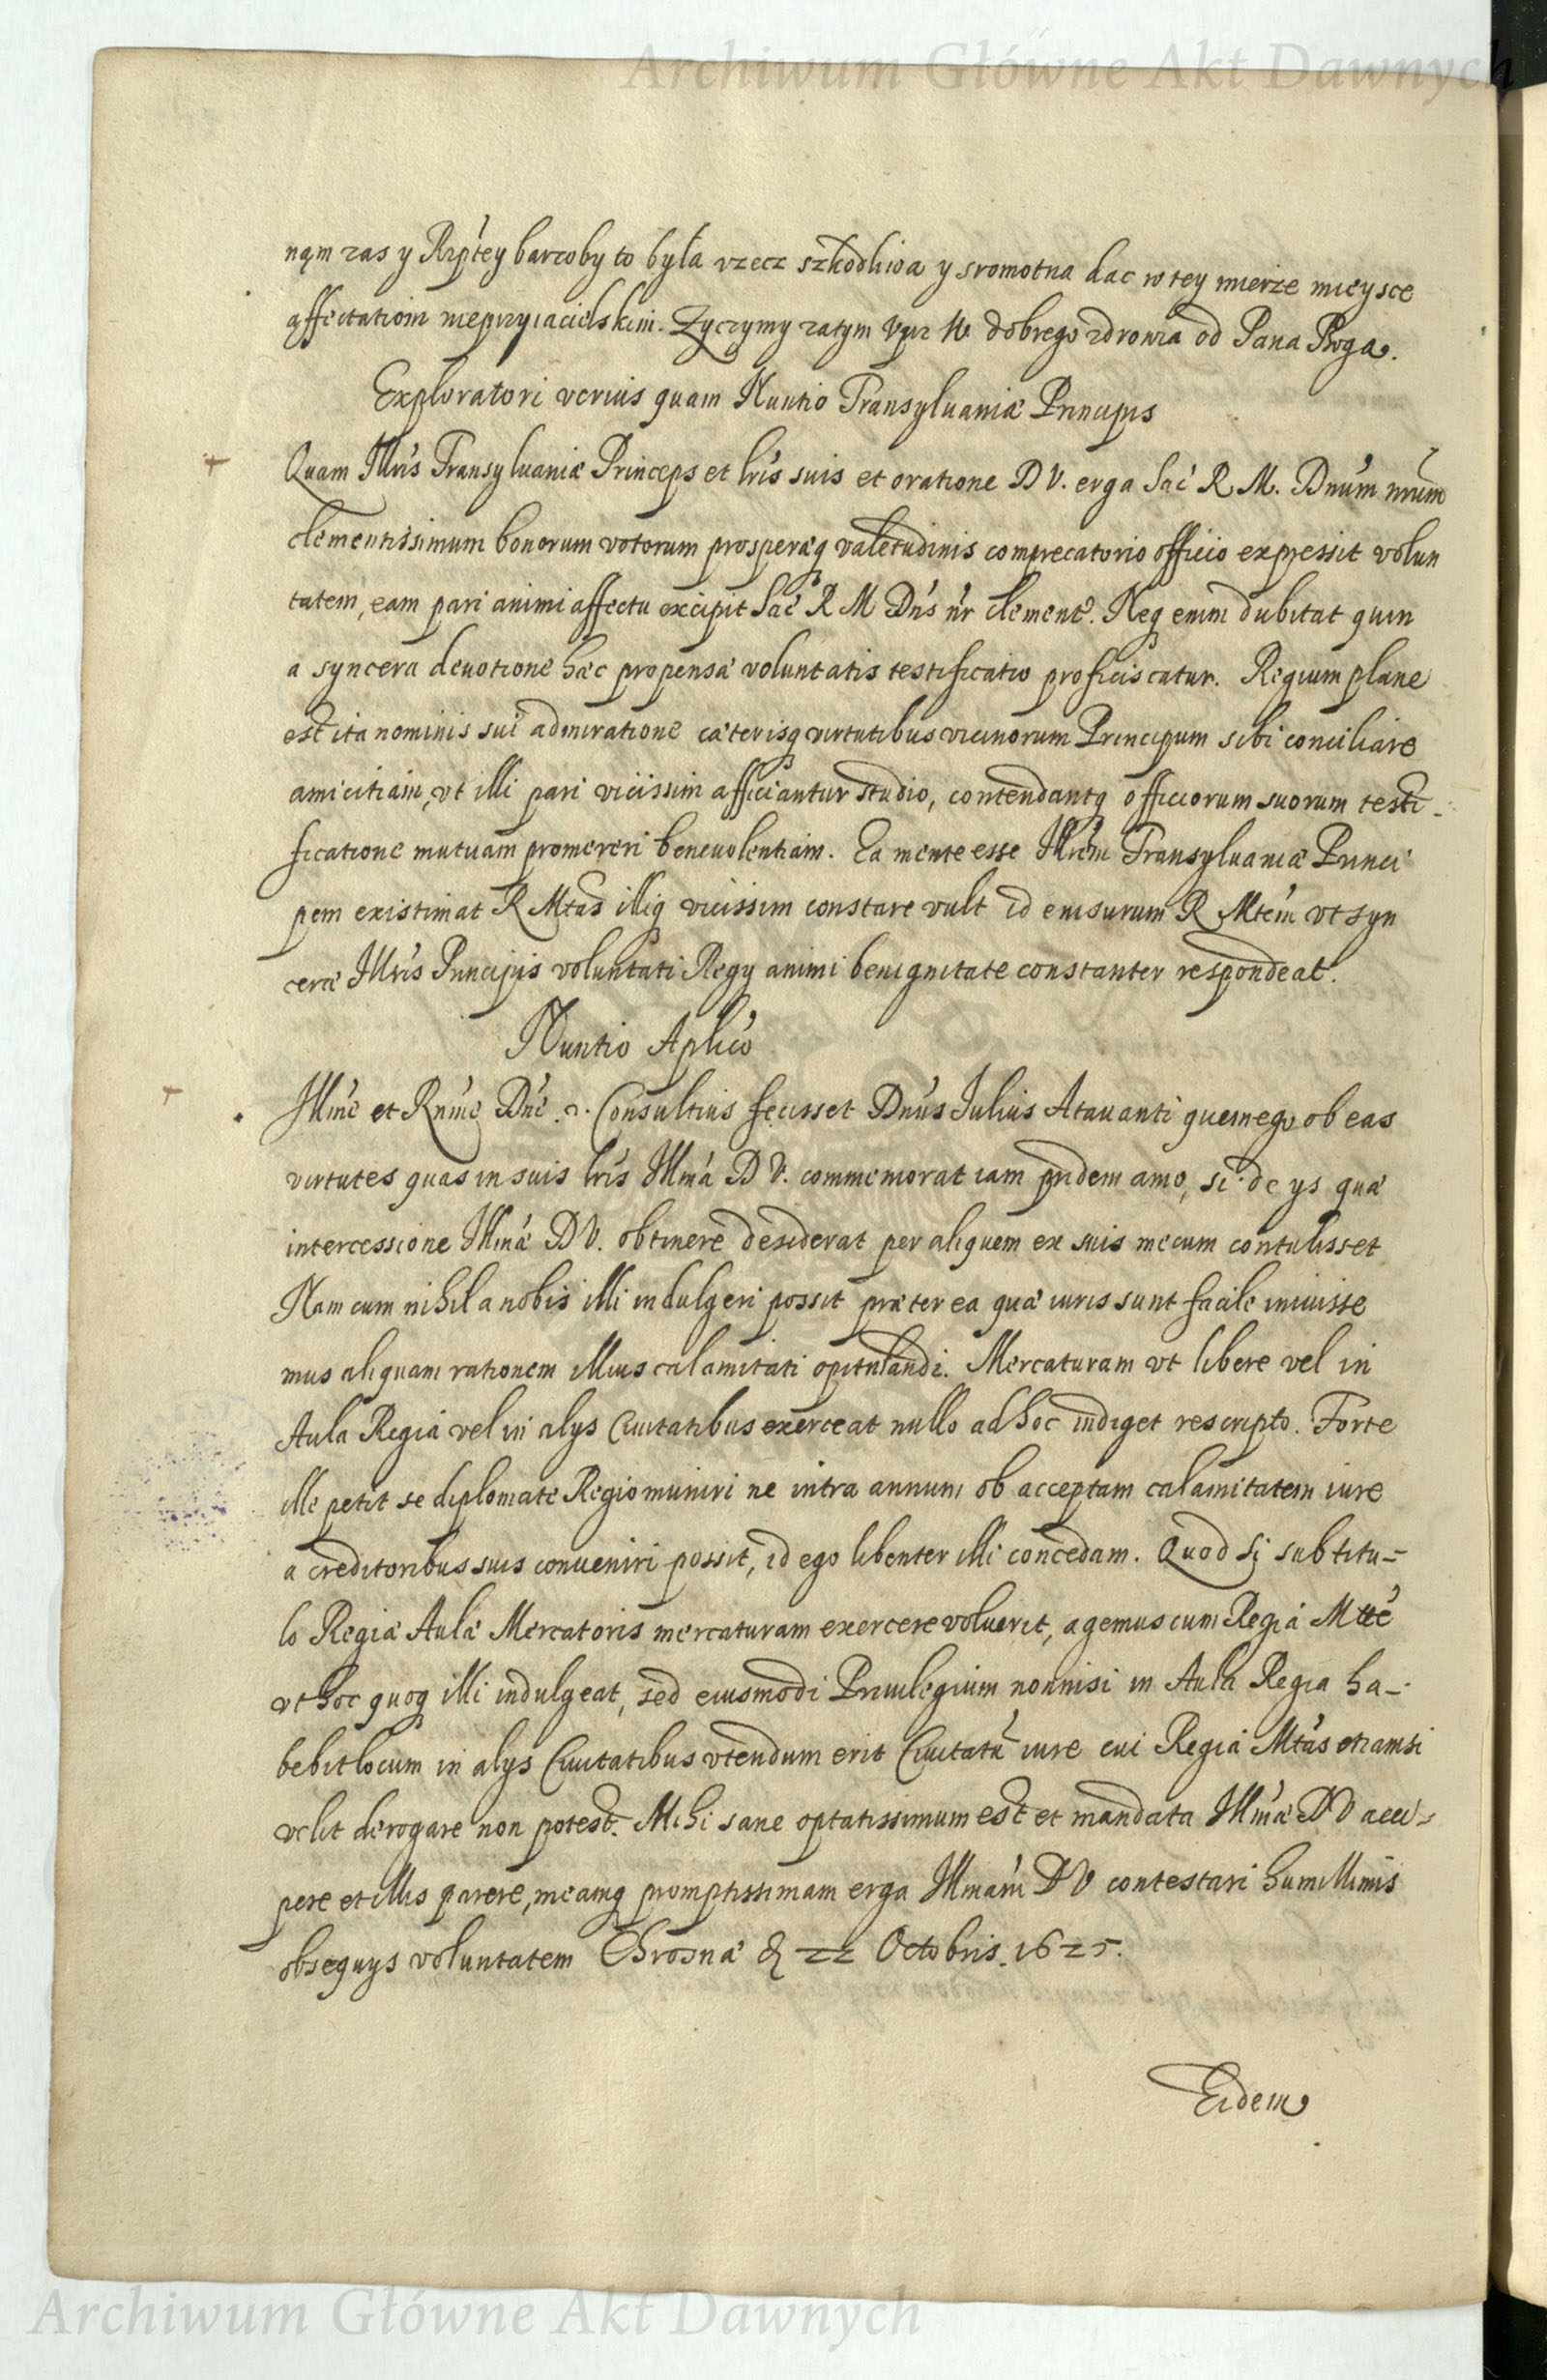 Archiwum Główne Akt Dawnych
nąm zas y Rzptey barzoby to była rzecz szkodliwa y sromotna dac w tey mierze mieysce
affectatiom nieprzyiacielskim. Zyczymy zatym Vpr W. dobrego zdrowia od Pana Boga.
Exploratori verius quam Nuntio Transyluaniæ Principis
Quam Illris Transyluaniæ Princeps et lris suis et oratione D V. erga Sac R M. Dnum nrum
clementissimum bonorum votorum prosperæq valetudinis comprecatorio officio expressit volun
tatem, eam pari animi affectu excipit Sac R M Dns nr clement. Neq enim dubitat quin
a syncera deuotione hæc propensæ voluntatis testificatio proficiscatur. Regium plane
est ita nominis sui admiratione cæterisq virtutibus vicinorum Principum sibi conciliare
amicitiam, vt illi pari vicissim afficiantur studio, contendantq officiorum suorum testi-
ficatione mutuam promereri beneuolentiam. Ea mente esse Illrem Transyluaniæ Princi
pem existimat R Mtas illiq vicissim constare vult id enisurum R Mtem vt syn
ceræ Illris Principis voluntati Regy animi benignitate constanter respondeat.
Nuntio Aplico
Illme et Rnme Dne. Consultius fecisset Dnus Iulius Atauanti quem ego ob eas
virtutes quas in suis lris Illma D V. commemorat iam pridem amo, si de ys quæ
intercessione Illmæ D V. obtinere desiderat per aliquem ex suis mecum contulisset
Nam cum nihil a nobis illi indulgeri possit præter ea quæ iuris sunt facile iniuisse
mus aliquam rationem illius calamitati opitulandi. Mercaturam vt libere vel in
Aula Regia vel in alys Ciuitatibus exerceat nullo ad hoc indiget rescripto. Forte
ille petit se diplomate Regio muniri ne intra annum ob acceptam calamitatem iure
a creditoribus suis conueniri possit, id ego libenter illi concedam. Quod si sub titu-
lo Regiæ Aulæ Mercatoris mercaturam exercere voluerit, agemus cum Regia Mtte
vt hoc quoq illi indulgeat, sed eiusmodi Priuilegium nonnisi in Aula Regia ha-
bebit locum in alys Ciuitatibus vtendum erit Ciuitatu iure cui Regia Mtas etiamsi
velit derogare non potest. Mihi sane optatissimum est et mandata Illmæ D V acci-
pere et illis parere, meamq promptissimam erga Illmam D V contestari humillimis
obsequys voluntatem Chrosnæ 22 Octobris. 1625.
Eidem
Archiwum Główne Akt Dawnych